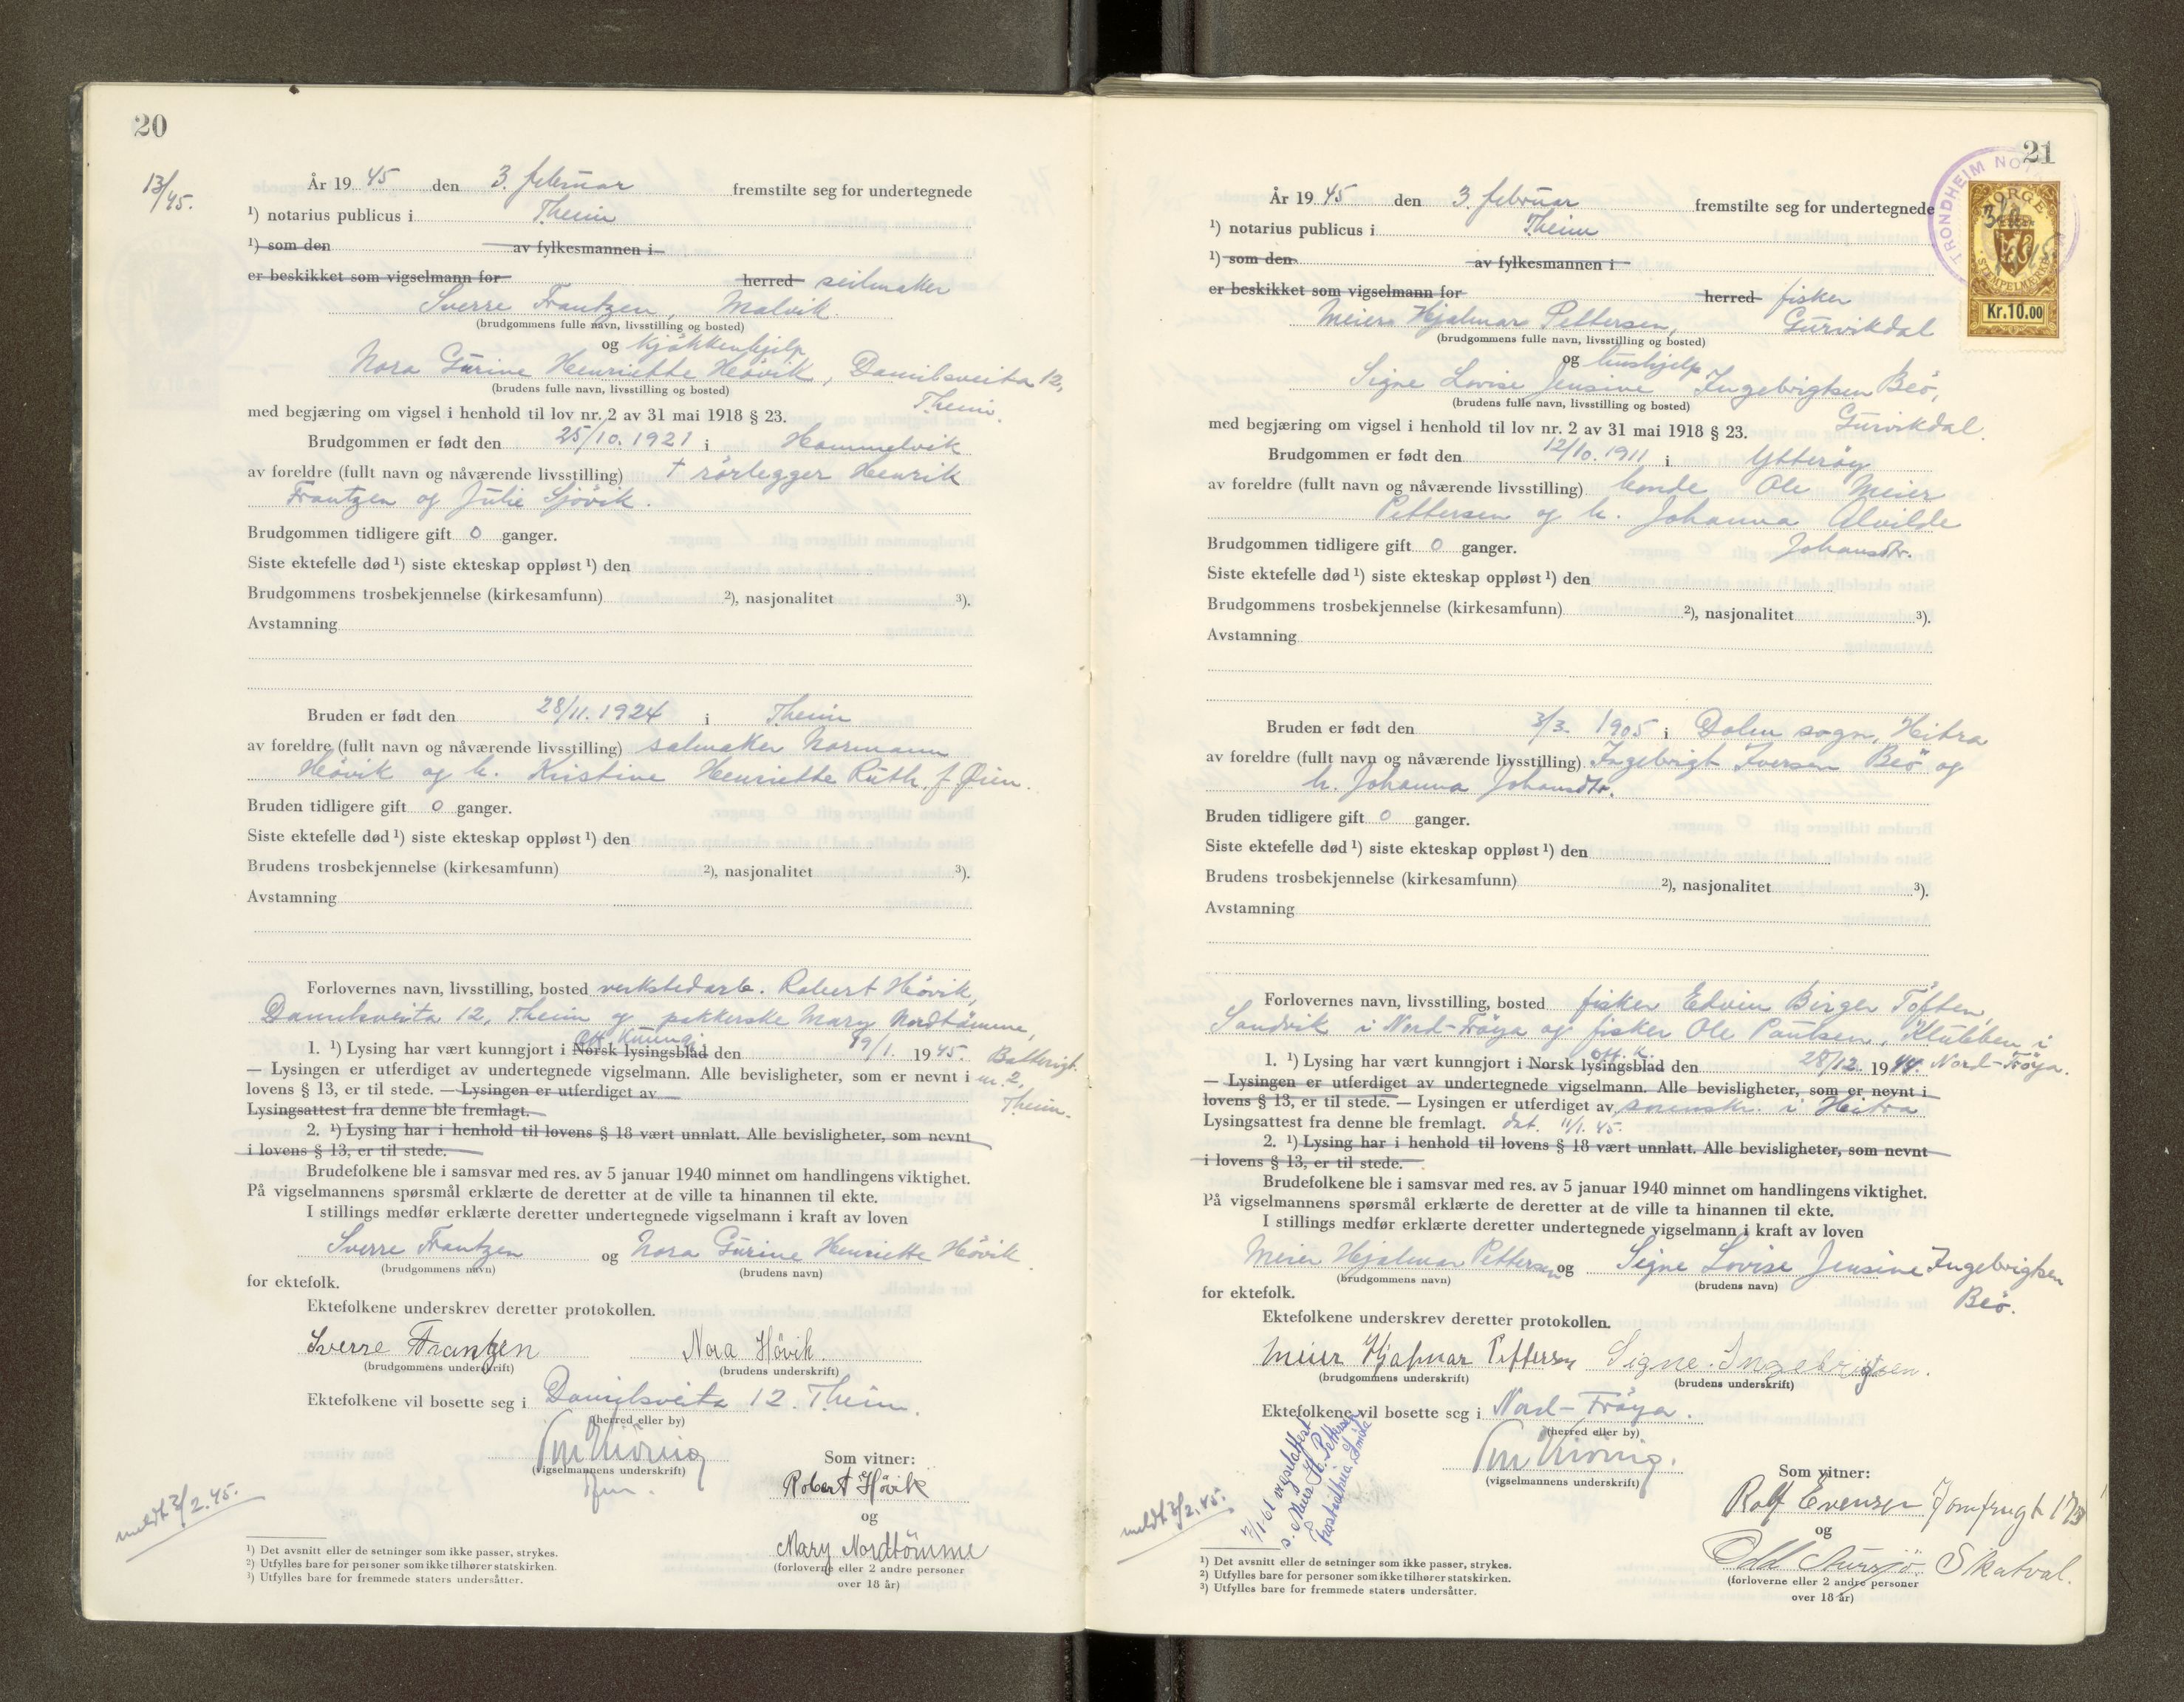 20
13/45.
År 1945 den 3. februar fremstilte seg for undertegnede
¹) notarius publicus i Theim
¹) som den av fylkesmannen i
er beskikket som vigselmann for herred seilmaker
Sverre Frantzen, Malvik.
(brudgommens fulle navn, livsstilling og bosted)
og kjökkenhjelp
Nora Gurine Henriette Hövik, Danielsveita 12,
(brudens fulle navn, livsstilling og bosted)
Theim.
med begjæring om vigsel i henhold til lov nr. 2 av 31 mai 1918 § 23.
Brudgommen er født den 25/10. 1921 i Hommelvik
av foreldre (fullt navn og nåværende livsstilling) † rörlegger Henrik
Frantzen og Julie Sjövik.
Brudgommen tidligere gift 0 ganger.
Siste ektefelle død ¹) siste ekteskap oppløst ¹) den
Brudgommens trosbekjennelse (kirkesamfunn) ²), nasjonalitet ³).
Avstamning
Bruden er født den 28/11. 1924 i Theim
av foreldre (fullt navn og nåværende livsstilling) salmaker Normann
Hövik og h. Kristine Henriette Ruth f. Øien.
Bruden tidligere gift 0 ganger.
Siste ektefelle død ¹) siste ekteskap oppløst ¹) den
Brudens trosbekjennelse (kirkesamfunn) ²), nasjonalitet ³).
Avstamning
Forlovernes navn, livsstilling, bosted verkstedarb. Robert Hövik,
Danielsveita 12, Theim og pakkerske Mary Nordtömme,
Off. Kunng.
1. ¹) Lysing har vært kunngjort i Norsk lysingsblad den 19/1. 1945. Batterigt.
— Lysingen er utferdiget av undertegnede vigselmann. Alle bevisligheter, som er nevnt i nr. 2,
lovens § 13, er til stede. — Lysingen er utferdiget av Theim.
Lysingsattest fra denne ble fremlagt.
2. ¹) Lysing har i henhold til lovens § 18 vært unnlatt. Alle bevisligheter, som nevnt
i lovens § 13, er til stede.
Brudefolkene ble i samsvar med res. av 5 januar 1940 minnet om handlingens viktighet.
På vigselmannens spørsmål erklærte de deretter at de ville ta hinannen til ekte.
I stillings medfør erklærte deretter undertegnede vigselmann i kraft av loven
Sverre Frantzen og Nora Gurine Henriette Hövik.
(brudgommens navn) (brudens navn)
for ektefolk.
Ektefolkene underskrev deretter protokollen.
Sverre Frantzen Nora Hövik.
(brudgommens underskrift) (brudens underskrift)
Ektefolkene vil bosette seg i Danielsveita 12. Theim.
(herred eller by)
(vigselmannens underskrift)
Som vitner:
Robert Hövik
og
Mary Nordtömme
(forloverne eller 2 andre personer
over 18 år)
meldt 3/2.45.
¹) Det avsnitt eller de setninger som ikke passer, strykes.
²) Utfylles bare for personer som ikke tilhører statskirken.
³) Utfylles bare for fremmede staters undersåtter.
21
TRONDHEIM NOT
NORGE
STEMPELMERKE
Kr.10.00
År 1945 den 3. februar fremstilte seg for undertegnede
¹) notarius publicus i Theim
¹) som den av fylkesmannen i
er beskikket som vigselmann for herred fisker
Meier Hjalmar Pettersen, Gurvikdal
(brudgommens fulle navn, livsstilling og bosted)
og hushjelp
Signe Lovise Jensine Ingebrigtsen Beö,
(brudens fulle navn, livsstilling og bosted)
Gurvikdal.
med begjæring om vigsel i henhold til lov nr. 2 av 31 mai 1918 § 23.
Brudgommen er født den 12/10. 1911 i Ytteröy
av foreldre (fullt navn og nåværende livsstilling) bonde Ole Meier
Pettersen og h. Johanna Alvilde
Johansdtr.
Brudgommen tidligere gift 0 ganger.
Siste ektefelle død ¹) siste ekteskap oppløst ¹) den
Brudgommens trosbekjennelse (kirkesamfunn) ²), nasjonalitet ³).
Avstamning
Bruden er født den 3/3. 1905 i Dolm sogn, Hitra
av foreldre (fullt navn og nåværende livsstilling) Ingebrigt Iversen Beö og
h. Johanna Johansdtr.
Bruden tidligere gift 0 ganger.
Siste ektefelle død ¹) siste ekteskap oppløst ¹) den
Brudens trosbekjennelse (kirkesamfunn) ²), nasjonalitet ³).
Avstamning
Forlovernes navn, livsstilling, bosted fisker Edvin Birger Töften,
Sandvik i Nord-Fröya og fisker Ole Paulsen, Klubben i
Off. K.
1. ¹) Lysing har vært kunngjort i Norsk lysingsblad den 28/12. 1944 Nord-Fröya.
— Lysingen er utferdiget av undertegnede vigselmann. Alle bevisligheter, som er nevnt i
lovens § 13, er til stede. — Lysingen er utferdiget av sorenskr. i Hitra
Lysingsattest fra denne ble fremlagt. dat. 11/1. 45.
2. ¹) Lysing har i henhold til lovens § 18 vært unnlatt. Alle bevisligheter, som nevnt
i lovens § 13, er til stede.
Brudefolkene ble i samsvar med res. av 5 januar 1940 minnet om handlingens viktighet.
På vigselmannens spørsmål erklærte de deretter at de ville ta hinannen til ekte.
I stillings medfør erklærte deretter undertegnede vigselmann i kraft av loven
Meier Hjalmar Pettersen og Signe Lovise Jensine Ingebrigtsen
(brudgommens navn) (brudens navn)
Beö.
for ektefolk.
Ektefolkene underskrev deretter protokollen.
Meier Hjalmar Pettersen Signe Ingebrigtsen.
(brudgommens underskrift) (brudens underskrift)
Ektefolkene vil bosette seg i Nord-Fröya.
(herred eller by)
(vigselmannens underskrift)
Som vitner:
Rolf Evensen Jomfrugt 17
og
Odd Skatval.
(forloverne eller 2 andre personer
over 18 år)
meldt 3/2.45.
7/1-61 vigselattest
s. Meier H. Pettersen
¹) Det avsnitt eller de setninger som ikke passer, strykes.
²) Utfylles bare for personer som ikke tilhører statskirken.
³) Utfylles bare for fremmede staters undersåtter.